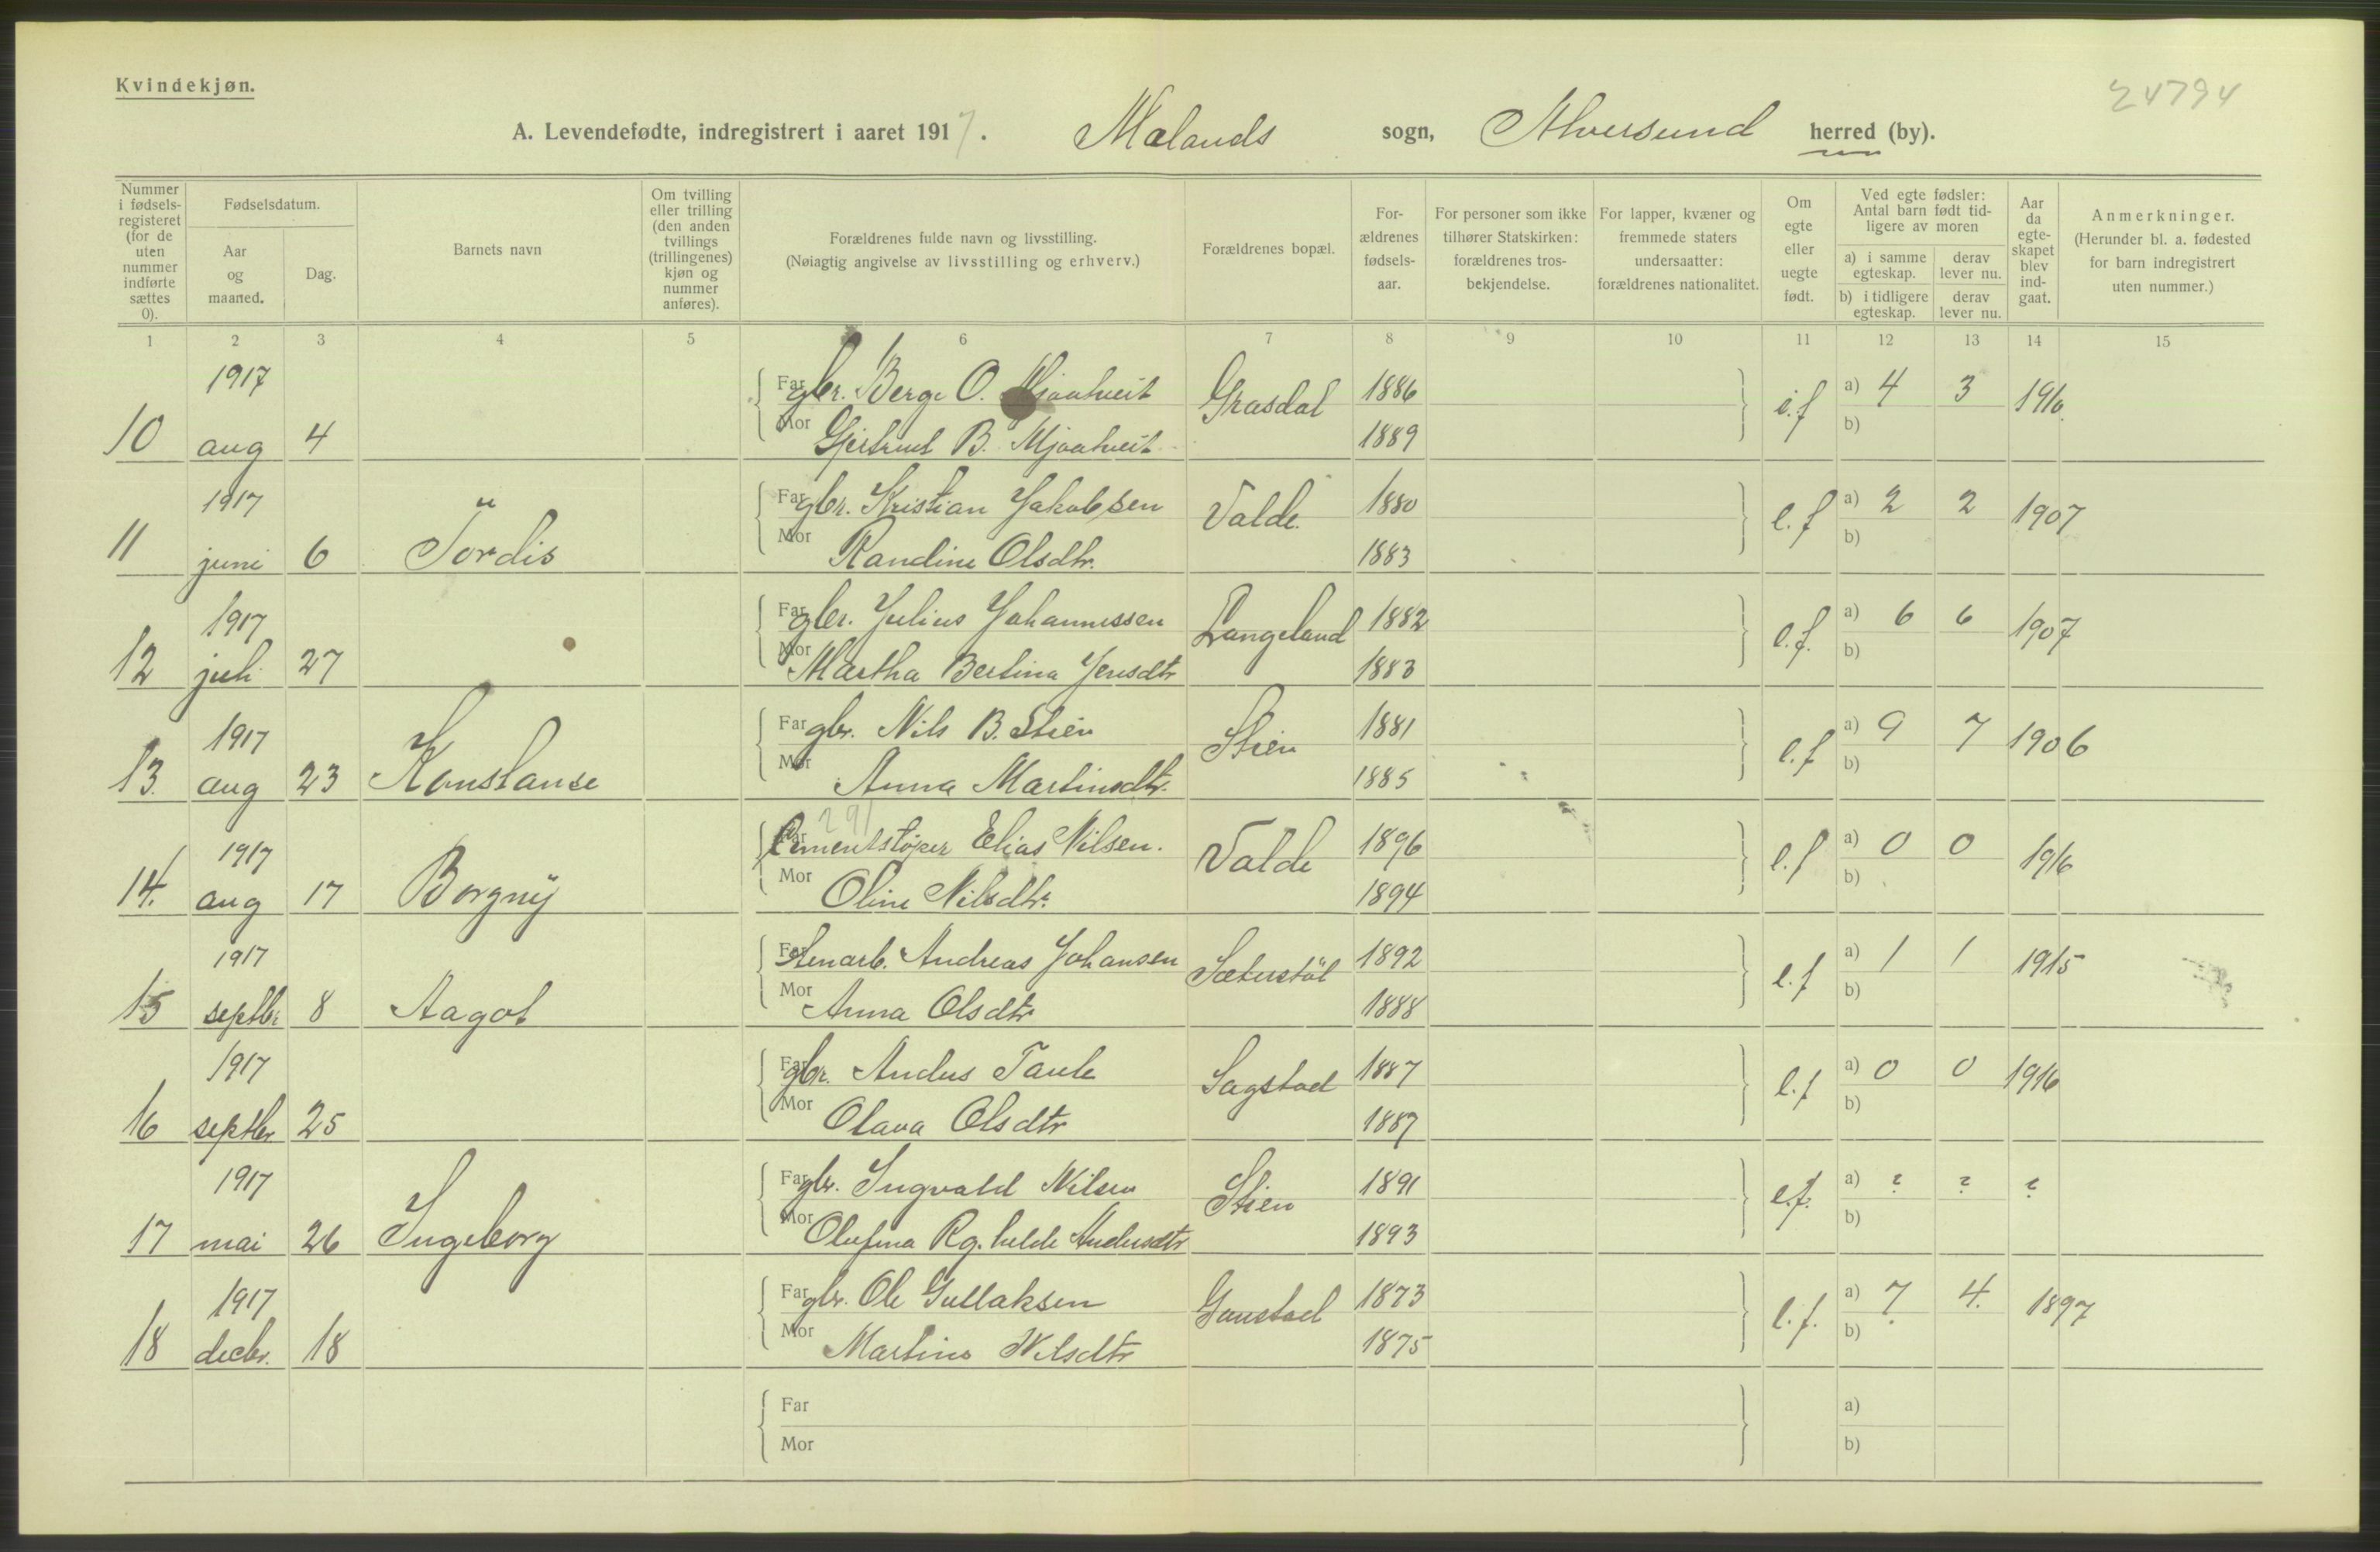 Kvindekjøn.
24794
A. Levendefødte, indregistrert i aaret 1917. Mælands sogn, Alversund herred (by).
Nummer i fødsels-registeret (for de uten nummer indførte sættes 0).
Fødselsdatum.
Aar og maaned.
Dag.
Barnets navn
Om tvilling eller trilling (den anden tvillings (trillingenes) kjøn og nummer anføres).
Forældrenes fulde navn og livsstilling.
(Nøiagtig angivelse av livsstilling og erhverv.)
Forældrenes bopæl.
For-ældrenes fødsels-aar.
For personer som ikke tilhører Statskirken: forældrenes tros-bekjendelse.
For lapper, kvæner og fremmede staters undersaatter: forældrenes nationalitet.
Om egte eller uegte født.
Ved egte fødsler: Antal barn født tid-ligere av moren
a) i samme egteskap.
derav lever nu.
b) i tidligere egteskap.
derav lever nu.
Aar da egte-skapet blev ind-gaat.
Anmerkninger.
(Herunder bl. a. fødested for barn indregistrert uten nummer.)
1 2 3 4 5 6 7 8 9 10 11 12 13 14 15
1917 Far gbr. Berge O. Mjaatveit Grasdal 1886 a) 4 3 1910
10 aug 4 Mor Gjertrud B. Mjaatveit 1889 b)
1917 Far gbr. Kristian Jakobsen Valde 1880 e.f a) 2 2 1907
11 juni 6 Jordis Mor Randine Olsdtr. 1883 b)
1917 Far gbr. Julius Johannessen Langeland 1882 e.f. a) 6 6 1907
12 juli 27 Mor Martha Bertina Jensdtr 1883 b)
1917 Far gbr. Nils B. Stien Stien 1881 e.f a) 9 7 1906
13. aug 23 Konstanse Mor Anna Martinsdtr. 1885 b)
291
1917 Far Cementstøper Elias Nilsen. Valde 1896 e.f a) 0 0 1916
14. aug 17 Borgny Mor Oline Nilsdtr. 1894 b)
1917 Far Stenarb. Andreas Johansen Sæterstøl 1892 e.f a) 1 1 1915
15 septbr 8 Aagot Mor Anna Olsdtr 1888 b)
1917 Far gbr. Anders Taule Sagstad 1887 e.f a) 0 0 1916
16 septbr 25 Mor Olava Olsdtr 1887 b)
1917 Far gbr. Ingvald Nilsen Stien 1891 e.f. a) ? ? ?
17 mai 26 Ingeborg Mor Olufina Andersdtr 1893 b)
1917 Far gbr. Ole Gullaksen Gaustad 1873 e.f. a) 7 4. 1897
18 decbr. 18 Mor Martine Nilsdtr 1875 b)
Far a)
Mor b)